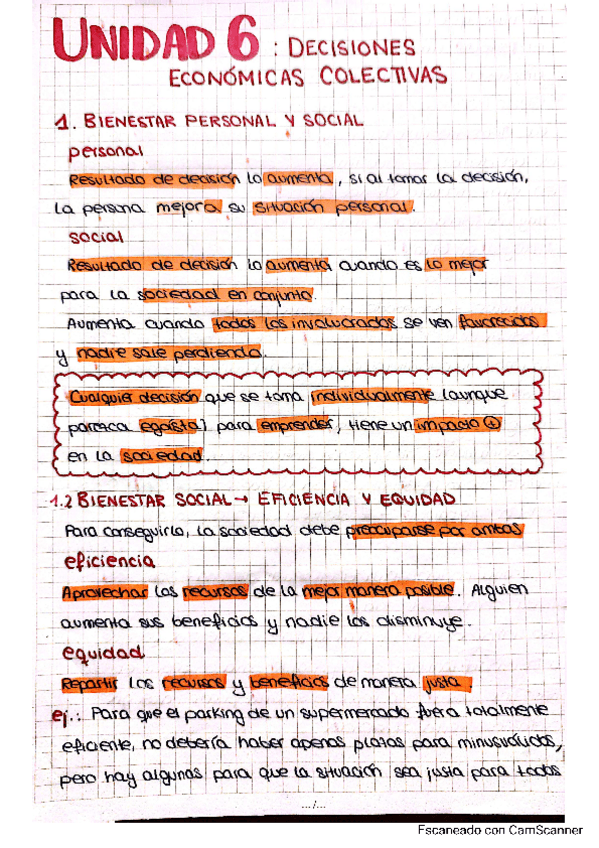 UNIDAD 6 : DECISIONES
ECONÓMICAS COLECTIVAS
1. BIENESTAR PERSONAL Y SOCIAL
personal
Resultado de decisión lo aumenta, si al tomar la decisión,
la persona mejora su situación personal.
social
Resultado de decisión lo aumenta cuando es lo mejor
para la sociedad en conjunto.
Aumenta cuando todos los involucrados se ven favorecidos
y nadie sale perdiendo.
Cualquier decisión que se toma individualmente (aunque
parezca egoísta) para emprender, tiene un impacto +
en la sociedad.
1.2 BIENESTAR SOCIAL → EFICIENCIA Y EQUIDAD
Para conseguirlo, la sociedad debe preocuparse por ambos
eficiencia
Aprovechar los recursos de la mejor manera posible. Alguien
aumenta sus beneficios y nadie los disminuye.
equidad
Repartir los recursos y beneficios de manera justa.
ej.: Para que el parking de un supermercado fuera totalmente
eficiente, no debería haber apenas plazas para minusválidos,
pero hay algunas para que la situación sea justa para todos
.../...
Escaneado con CamScanner